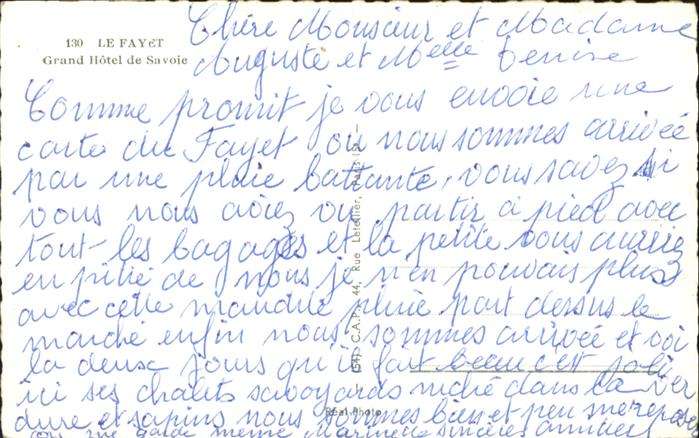 130 LE FAYET
Grand Hôtel de Savoie
Chère Monsieur et Madame
Auguste et Melle Denise
Comme promit je vous envoie une
carte du Fayet ou nous sommes arrivée
par une pluie battante, vous savez si
vous nous aviez vu partir a pied avec
tout les bagages et la petite vous auriez
eu pitié de nous je n'en pouvais plus
avec cette maudite pluie part dessus le
marché enfin nous sommes arrivée et voi
la deux jours qu'il fait beau c'est joli
ici ses chalets savoyards niché dans la ver
dure et sapins nous sommes bien et peu me repose
on me garde même Marinette sincères amitiés
C.A.P. 44, Rue Letellier,
Real-Photo